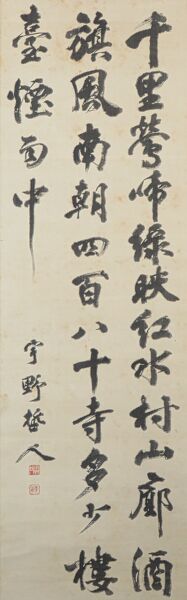 千里鶯啼綠映紅水村山廓酒
旗風南朝四百八十寺多少樓
臺煙雨中
宇野哲人